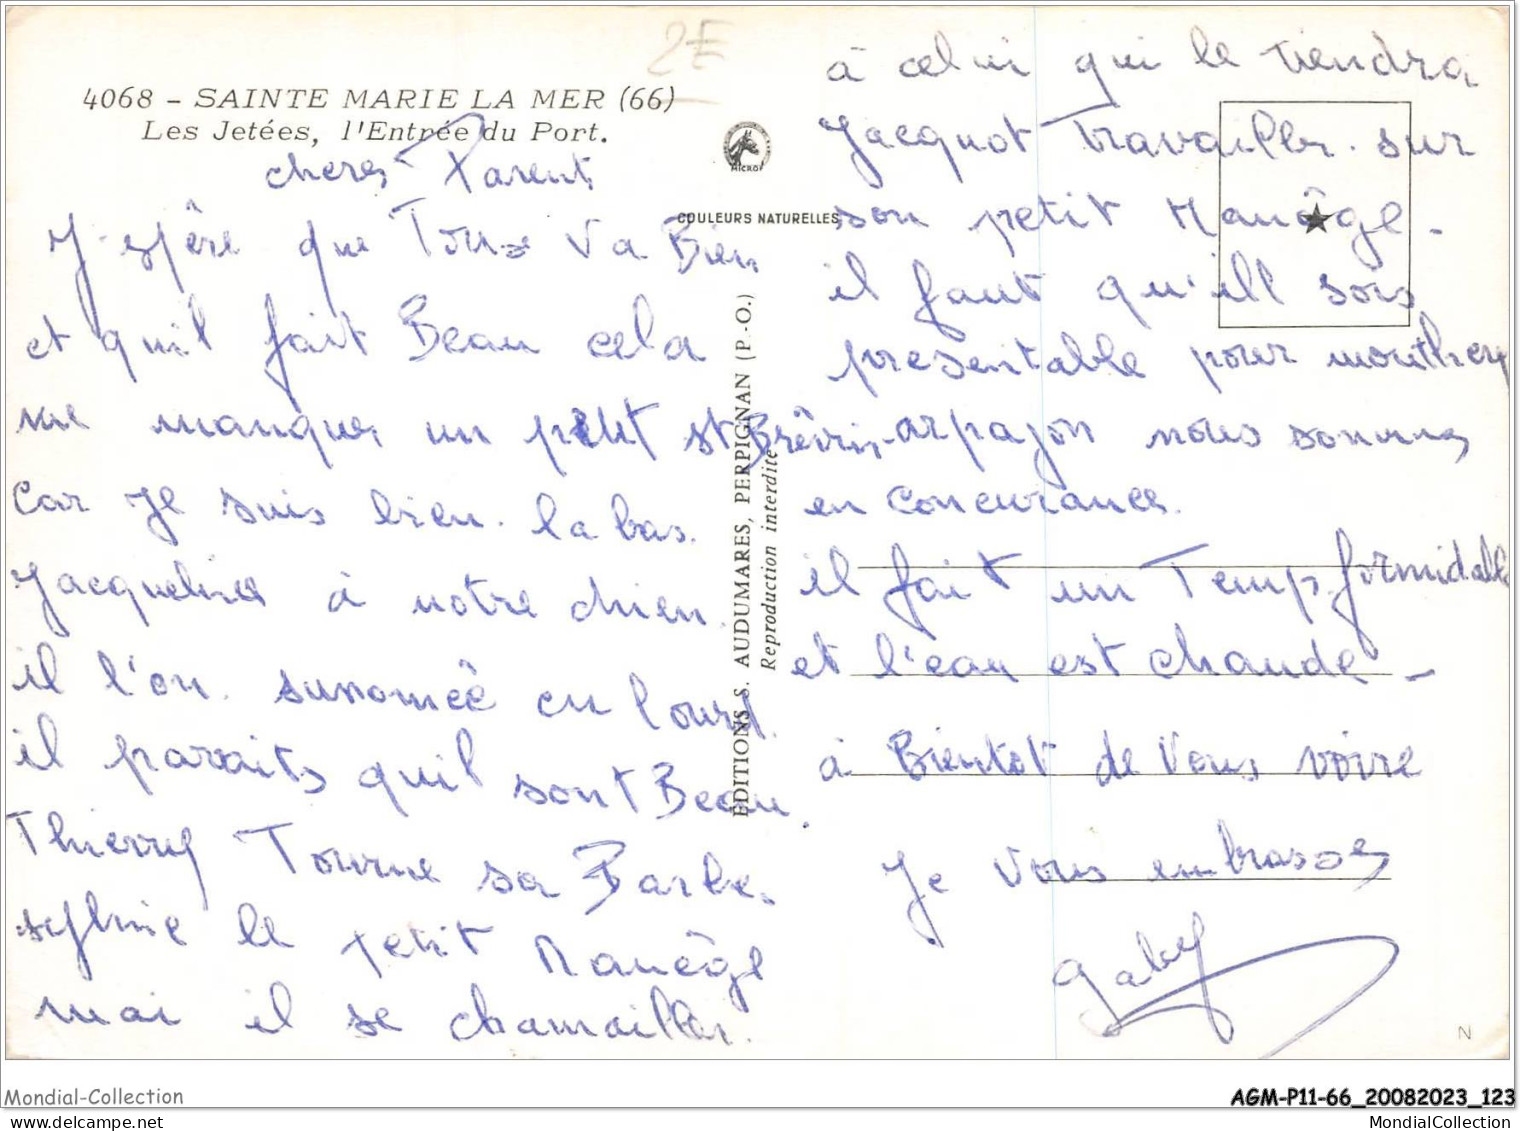 2E
4068 - SAINTE MARIE LA MER (66)
Les Jetées, l'Entrée du Port.
cheres Parents
J'espêre que Tous Va Bien
et quil fait Beau cela
me manques un petit st Brévin
Car Je suis bien la bas.
Jacqueline à notre chien.
il l'on surnomeé en lourd.
il paraits quil sont Beau.
Thierry Tourne sa Barbe.
sylvie le petit Manêge
mai il se chamailler.
MICRO
COULEURS NATURELLES
EDITIONS S. AUDUMARES, PERPIGNAN (P.-O.)
Reproduction interdite
à celui qui le tiendra
Jacquot Travailler sur
son petit Manêge -
il faut qu'ill sois
presentable pour montlhery
arpajon nous sommes
en concurance.
il fait un Temp formidable
et l'eau est chaude -
à Bientot de Vous voire
Je Vous embrasses
Gaby
N
Mondial-Collection
AGM-P11-66_20082023_123
MondialCollection.com
MondialCollection